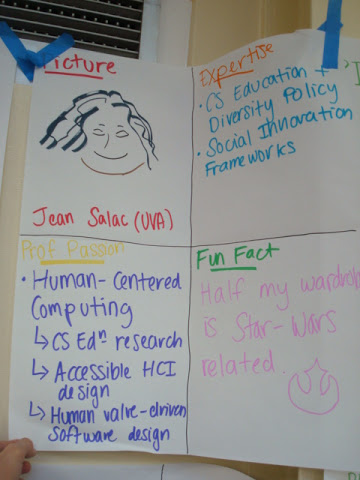 Picture
Jean Salac (UVA)
Expertise
• CS Education +
Diversity Policy
• Social Innovation
Frameworks
Prof Passion
• Human-Centered
Computing
↳ CS Edn research
↳ Accessible HCI
design
↳ Human valve-driven
Software design
Fun Fact
Half my wardrobe
is Star-Wars
related.